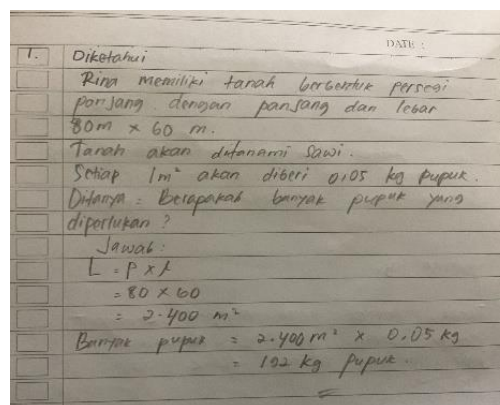 DATE :
1. Diketahui
Rina memiliki tanah berbentuk persegi
panjang dengan panjang dan lebar
80m × 60 m.
Tanah akan ditanami sawi.
Setiap 1m² akan diberi 0,05 kg pupuk.
Ditanya = Berapakah banyak pupuk yang
diperlukan ?
Jawab :
L = P × l
= 80 × 60
= 2.400 m²
Banyak pupuk = 2.400 m² × 0,05 kg
= 192 kg pupuk.